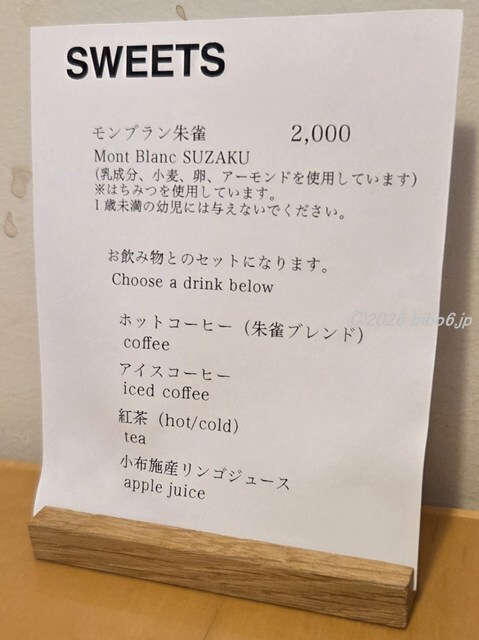 SWEETS
モンブラン朱雀 2,000
Mont Blanc SUZAKU
(乳成分、小麦、卵、アーモンドを使用しています)
※はちみつを使用しています。
1歳未満の幼児には与えないでください。
お飲み物とのセットになります。
Choose a drink below
ホットコーヒー（朱雀ブレンド）
coffee
アイスコーヒー
iced coffee
紅茶（hot/cold）
tea
小布施産リンゴジュース
apple juice
©2026 bibo6.jp